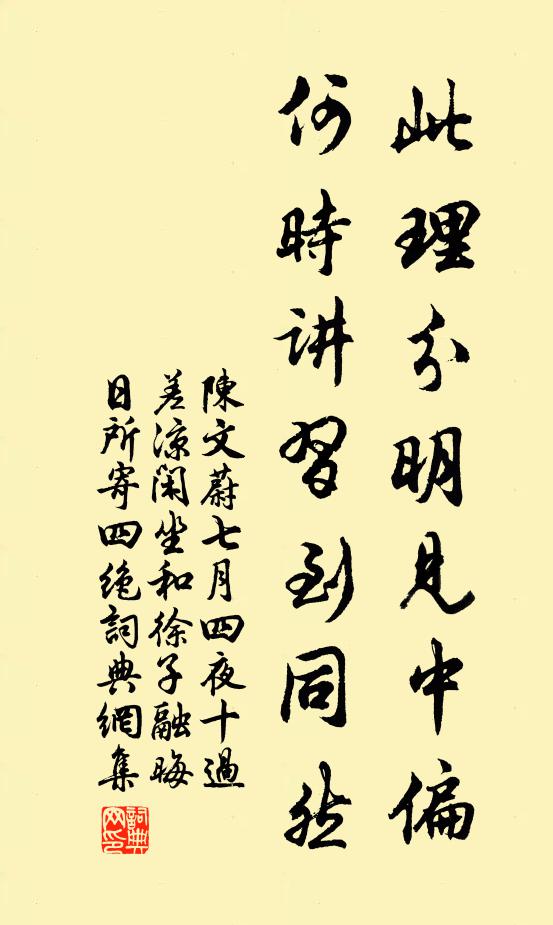 此理分明見中偏
何時讲習到同然
陳文蔚七月四夜十過
差涼閑坐和徐子融晦
日所寄四絶詞典網集
詞典网印